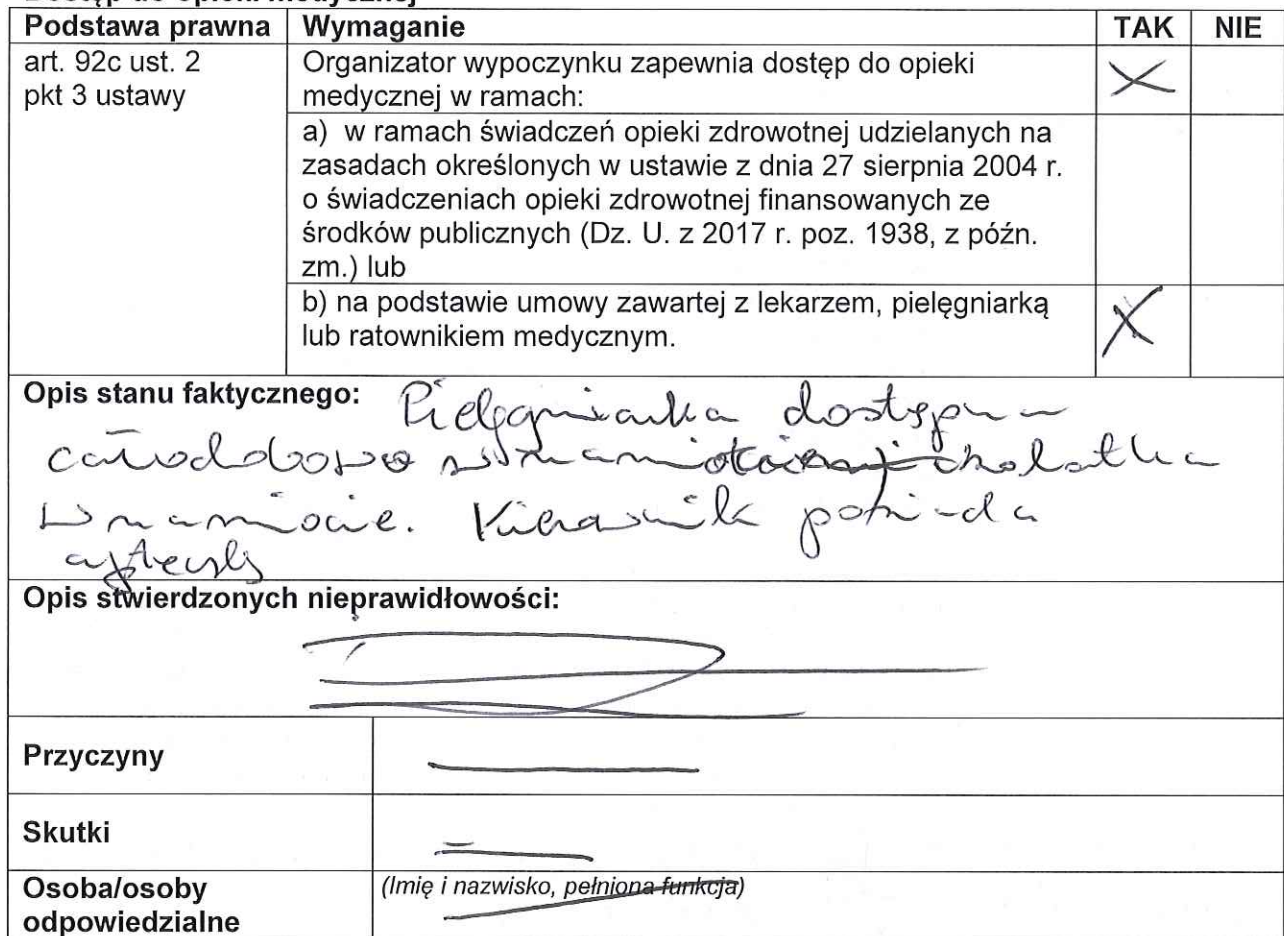 Podstawa prawna Wymaganie TAK NIE
art. 92c ust. 2
pkt 3 ustawy
Organizator wypoczynku zapewnia dostęp do opieki
medycznej w ramach:
a) w ramach świadczeń opieki zdrowotnej udzielanych na
zasadach określonych w ustawie z dnia 27 sierpnia 2004 r.
o świadczeniach opieki zdrowotnej finansowanych ze
środków publicznych (Dz. U. z 2017 r. poz. 1938, z późn.
zm.) lub
b) na podstawie umowy zawartej z lekarzem, pielęgniarką
lub ratownikiem medycznym.
Opis stanu faktycznego: Pielęgniarka dostępna
całodobowo
w namiocie. Kierownik posiada
Opis stwierdzonych nieprawidłowości:
Przyczyny
Skutki
Osoba/osoby
odpowiedzialne
(Imię i nazwisko, pełniona funkcja)